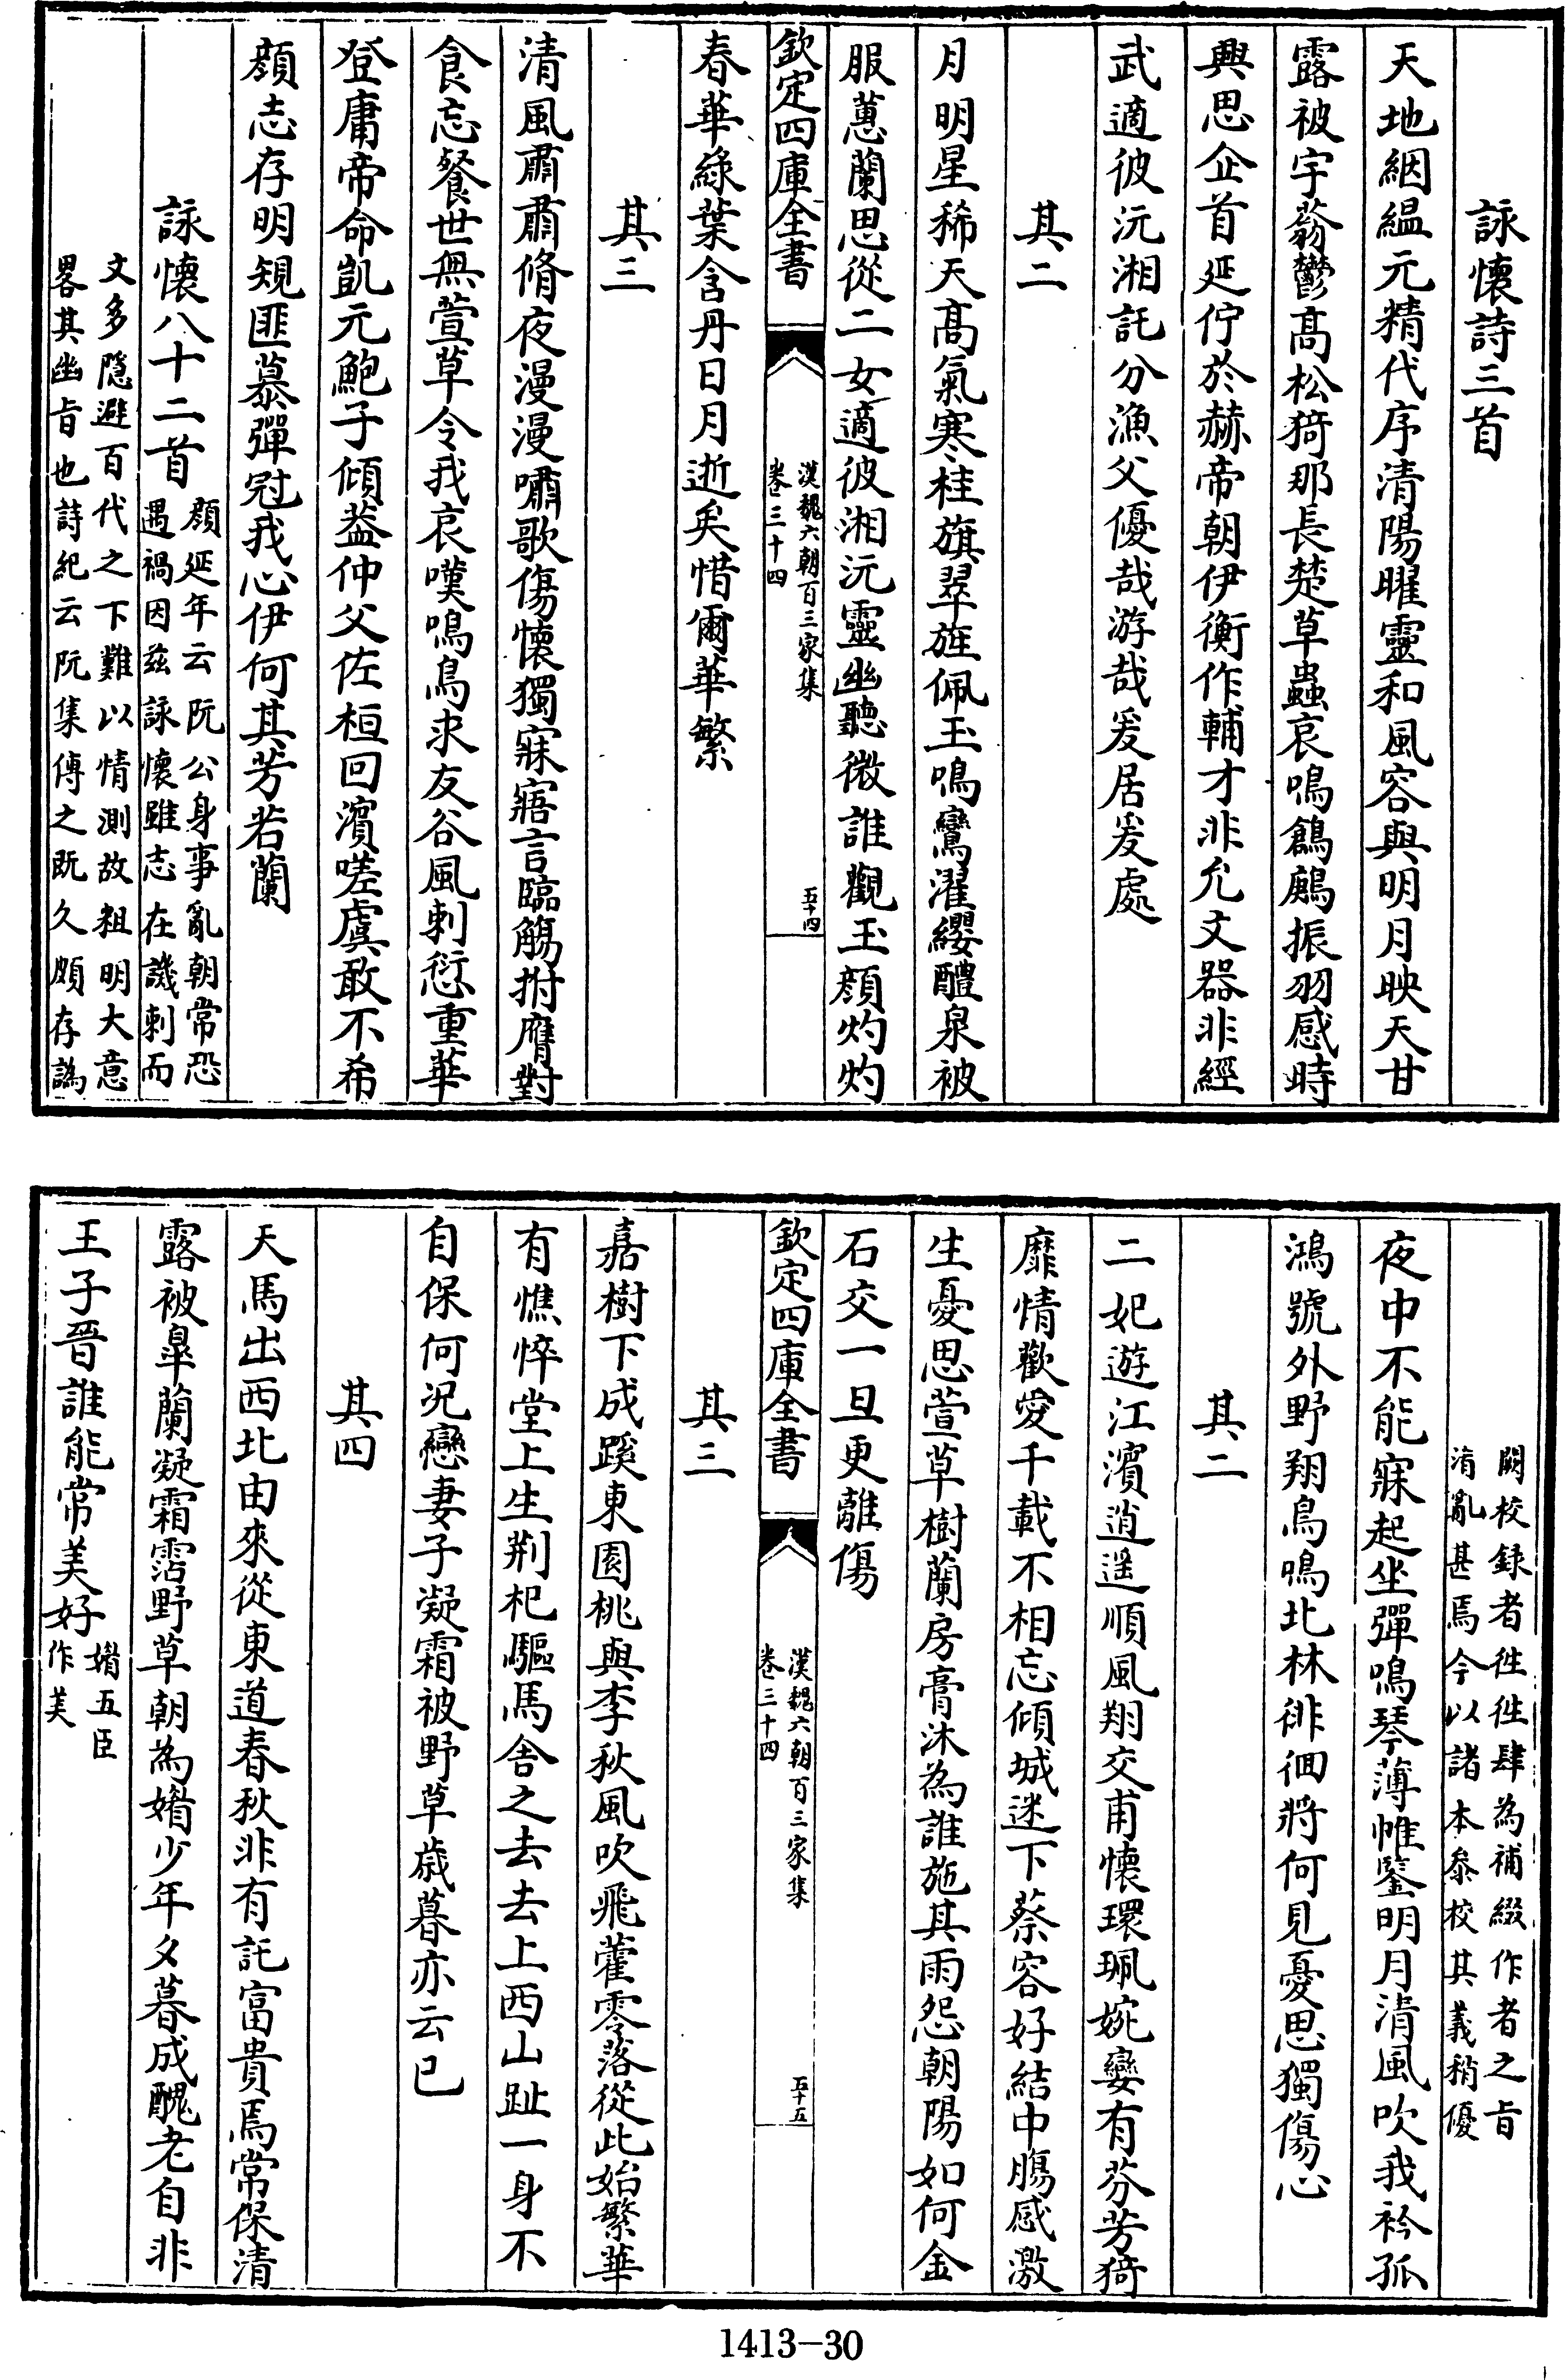 詠懷詩三首
天地絪緼元精代序清陽曜靈和風容與明月映天甘
露被宇蓊鬱高松猗那長楚草蟲哀鳴鶬鶊振羽感時
興思企首延佇於赫帝朝伊衡作輔才非允文器非經
武適彼沅湘託分漁父優哉游哉爰居爰處
其二
月明星稀天髙氣寒桂旗翠旌佩玉鳴鸞濯纓醴泉被
服蕙蘭思從二女適彼湘沅靈幽聽微誰觀玉顔灼灼
欽定四庫全書
漢魏六朝百三家集
卷三十四
五十四
春華緑葉含丹日月逝矣惜爾華繁
其三
清風肅肅脩夜漫漫嘯歌傷懷獨寐寤言臨觴拊膺對
食忘餐世無萱草令我哀嘆鳴鳥求友谷風刺愆重華
登庸帝命凱元鮑子傾葢仲父佐桓回濱嗟虞敢不希
顔志存明規匪慕彈冠我心伊何其芳若蘭
詠懷八十二首
顔延年云阮公身事亂朝常恐
遇禍因兹詠懷雖志在譏刺而
文多隠避百代之下難以情測故粗明大意
畧其幽旨也詩紀云阮集傳之既久頗存譌
闕校録者徃徃肆為補綴作者之旨
淆亂甚焉今以諸本叅校其義稍優
夜中不能寐起坐彈鳴琴薄帷鑒明月清風吹我衿孤
鴻號外野翔鳥鳴北林徘徊將何見憂思獨傷心
其二
二妃遊江濱逍遥順風翔交甫懷環珮婉孌有芬芳猗
靡情歡愛千載不相忘傾城迷下蔡容好結中腸感激
生憂思萱草樹蘭房膏沐為誰施其雨怨朝陽如何金
石交一旦更離傷
欽定四庫全書
漢魏六朝百三家集
卷三十四
五十五
其三
嘉樹下成蹊東園桃與李秋風吹飛藿零落從此始繁華
有憔悴堂上生荆杞驅馬舍之去去上西山趾一身不
自保何况戀妻子凝霜被野草歳暮亦云已
其四
天馬出西北由來從東道春秋非有託富貴焉常保清
露被臯蘭凝霜霑野草朝為媚少年夕暮成醜老自非
王子晉誰能常美好
媚五臣
作美
1413-30